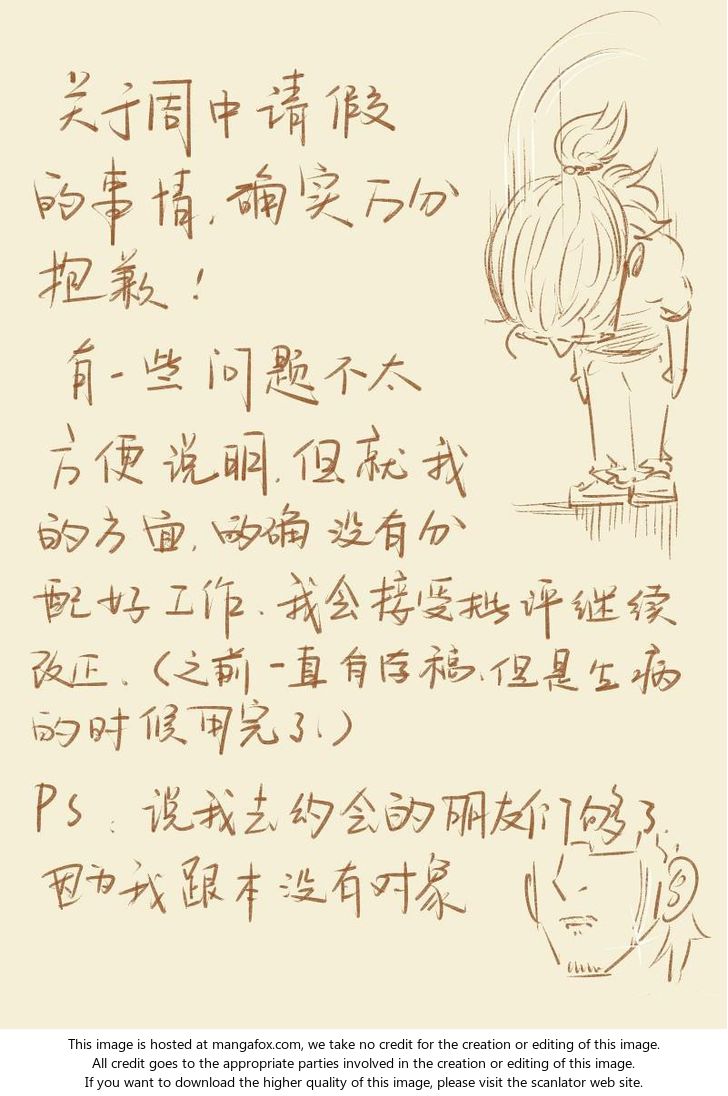 关于周中请假
的事情,确实万分
抱歉!
有一些问题不太
方便说明,但就我
的方面,的确没有分
配好工作、我会接受批评继续
改正、(之前一直有存稿,但是生病
的时候用完了、)
PS:说我去约会的朋友们够了
因为我跟本没有对象
This image is hosted at mangafox.com, we take no credit for the creation or editing of this image.
All credit goes to the appropriate parties involved in the creation or editing of this image.
If you want to download the higher quality of this image, please visit the scanlator web site.